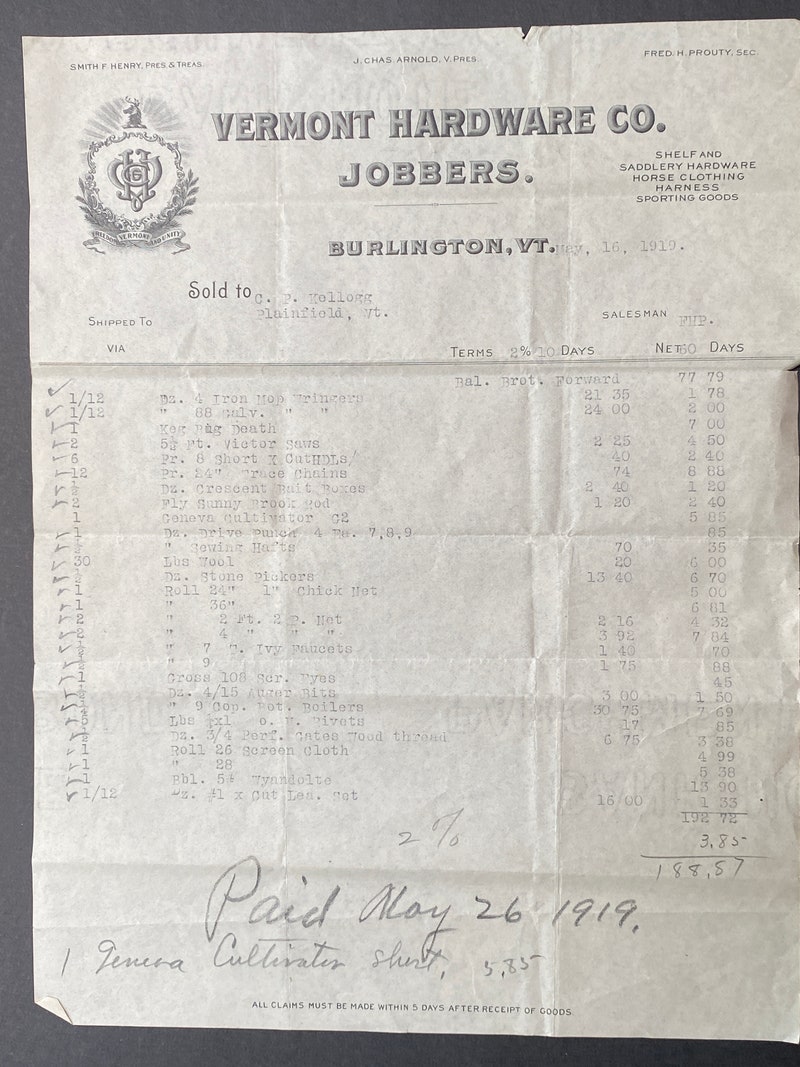 SMITH F. HENRY, PRES. & TREAS. J. CHAS. ARNOLD, V. PRES. FRED. H. PROUTY, SEC.
VERMONT HARDWARE CO.
JOBBERS.
SHELF AND
SADDLERY HARDWARE
HORSE CLOTHING
HARNESS
SPORTING GOODS
VERMONT AND UNITY
BURLINGTON, VT. May, 16, 1919.
Sold to C. P. Kellogg
Plainfield, Vt.
SHIPPED TO SALESMAN FHP.
VIA TERMS 2% 10 DAYS NET 60 DAYS
Bal. Brot. Forward 77 79
1/12 Dz. 4 Iron Mop Wringers 21 35 1 78
1/12 " 88 Galv. " " 24 00 2 00
1 Keg Bug Death 7 00
2 5½ Ft. Victor Saws 2 25 4 50
6 Pr. 8 Short X Cut HDLs 40 2 40
12 Pr. 24" Trace Chains 74 8 88
½ Dz. Crescent Bait Boxes 2 40 1 20
2 Fly Sunny Brook Rod 1 20 2 40
1 Geneva Cultivator C2 5 85
1 Dz. Drive Punch 4 Ea. 7,8,9 85
½ " Sewing Hafts 70 35
30 Lbs Wool 20 6 00
½ Dz. Stone Pickers 13 40 6 70
1 Roll 24" 1" Chick Net 5 00
1 " 36" 6 81
2 " 2 Ft. 2 P. Net 2 16 4 32
2 " 4 " " " 3 92 7 84
½ " 7 Ivy Faucets 1 40 70
½ " 9 1 75 88
1 Gross 108 Scr. Eyes 45
½ Dz. 4/15 Auger Bits 3 00 1 50
" 9 Cop. Bot. Boilers 30 75 7 69
5 Lbs Rivets 17 85
½ Dz. 3/4 Perf. Gates Wood thread 6 75 3 38
1 Roll 26 Screen Cloth 4 99
1 " 28 5 38
1 Bbl. Wyandolte 13 90
1/12 Dz. #1 x Cut Lea. Set 16 00 1 33
192 72
2 % 3.85
188,87
Paid May 26 1919.
1 Geneva Cultivator short, 5,85
ALL CLAIMS MUST BE MADE WITHIN 5 DAYS AFTER RECEIPT OF GOODS.